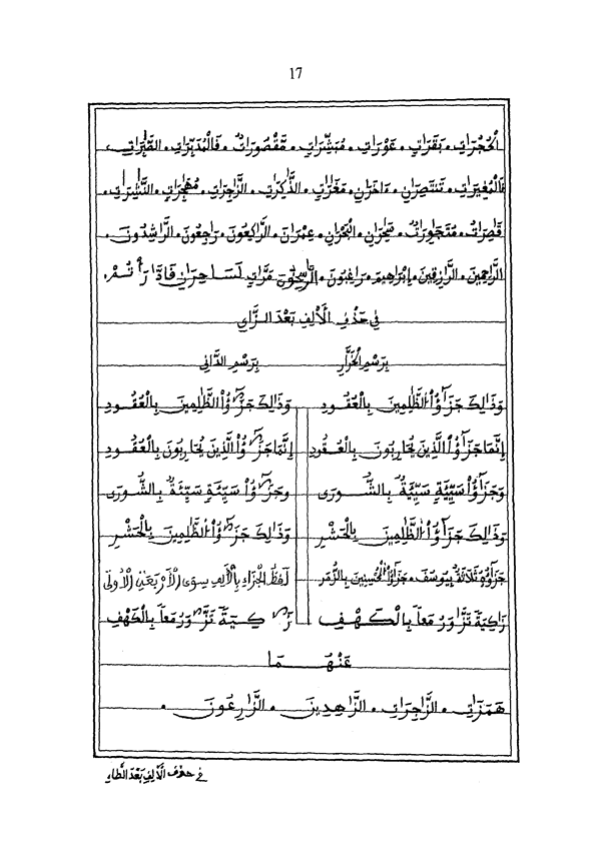 17
الْحُجُرَاتِ. بَقَرَاتٍ. عَوْرَاتٍ. مُبَشِّرَاتٍ. مَّقْصُورَاتٌ. فَالْمُدَبِّرَاتِ.
فَالْمُغِيرَاتِ. تَنتَصِرَانِ. ءَاخَرَانِ. مَغَارَاتٍ. الذَّاكِرَاتِ. الزَّاجِرَاتِ. مُهَاجِرَاتٍ. النَّاشِرَاتِ.
قَاصِرَاتُ. مُتَجَاوِرَاتٌ. سَاحِرَانِ. الْبَحْرَانِ. عِمْرَانَ. الرَّاكِعُونَ. رَاجِعُونَ. الرَّاشِدُونَ.
الرَّاحِمِينَ. الرَّازِقِينَ. إِبْرَاهِيمَ. رَاغِبُونَ. الرَّاسِخُونَ. مَرَّاتٍ لَسَاحِرَانِ فَادَّارَأْتُمْ.
فِي حَذْفِ الْأَلِفِ بَعْدَ الزَّايِ
بِرَسْمِ الْخَرَّازِ
بِرَسْمِ الدَّانِي
وَذَالِكَ جَزَاؤُاْ الظَّالِمِينَ بِالْعُقُودِ
وَذَالِكَ جَزَاؤُاْ الظَّالِمِينَ بِالْعُقُودِ
إِنَّمَا جَزَاؤُاْ الَّذِينَ يُحَارِبُونَ بِالْعُقُودِ
إِنَّمَا جَزَاؤُاْ الَّذِينَ يُحَارِبُونَ بِالْعُقُودِ
وَجَزَاؤُاْ سَيِّئَةٍ سَيِّئَةٌ بِالشُّورَى
وَجَزَاؤُاْ سَيِّئَةٍ سَيِّئَةٌ بِالشُّورَى
وَذَالِكَ جَزَاؤُاْ الظَّالِمِينَ بِالْحَشْرِ
وَذَالِكَ جَزَاؤُاْ الظَّالِمِينَ بِالْحَشْرِ
جَزَاؤُهُ ثَلَاثَةٌ بِيُوسُفَ. جَزَاؤُاْ الْمُحْسِنِينَ بِالزُّمَرِ
لَفْظُ الْجَزَاءِ بِالْأَلِفِ سِوَى الْأَرْبَعَةِ الْأُولَى
زَاكِيَةً تَّزَاوَرُ مَعاً بِالْكَهْفِ
زَاكِيَةً تَّزَاوَرُ مَعاً بِالْكَهْفِ
عَنْهُمَا
هَمَزَاتِ. الزَّاجِرَاتِ. الزَّاهِدِينَ. الزَّارِعُونَ.
في حذف الألف بعد الطاء